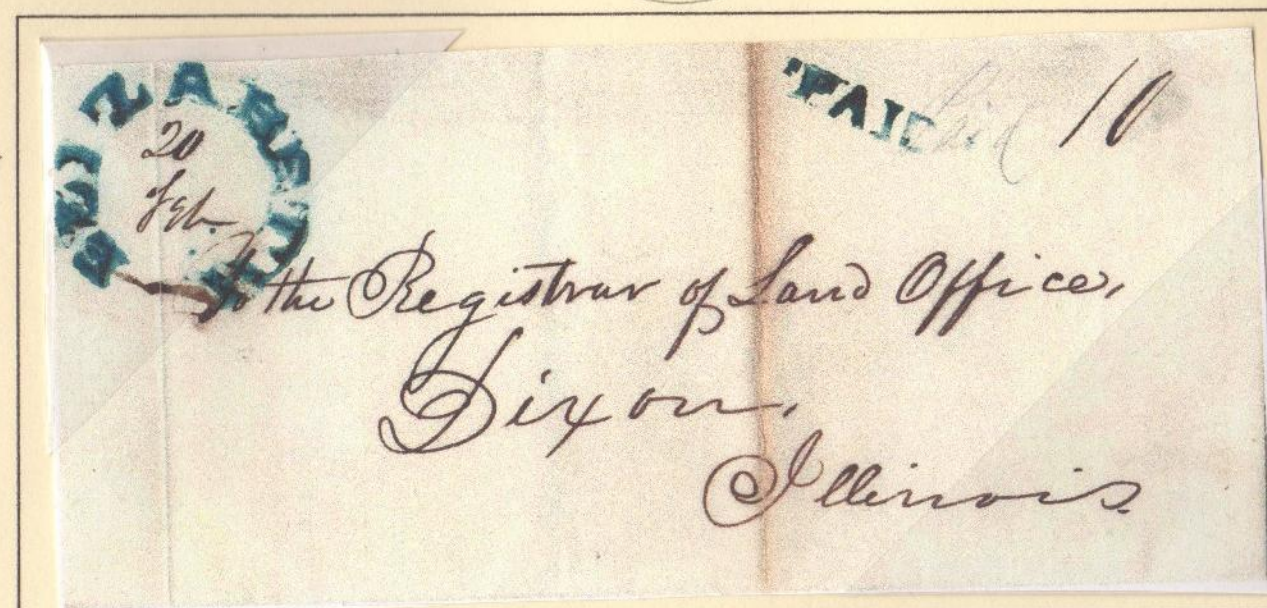 ELIZABETH
20
Feb.
PAID Paid 10
To the Registrar of Land Office,
Dixon,
Illinois.